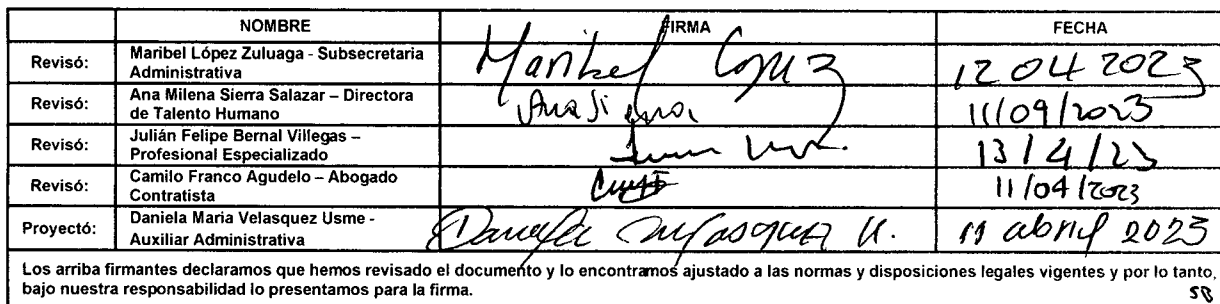 NOMBRE FIRMA FECHA
Revisó: Maribel López Zuluaga - Subsecretaria
Administrativa Maribel Lopez 12 04 2023
Revisó: Ana Milena Sierra Salazar – Directora
de Talento Humano Ana Sierra 11/09/2023
Revisó: Julián Felipe Bernal Villegas –
Profesional Especializado 13/4/23
Revisó: Camilo Franco Agudelo – Abogado
Contratista 11/04/2023
Proyectó: Daniela Maria Velasquez Usme -
Auxiliar Administrativa Daniela Velasquez U. 11 abril 2023
Los arriba firmantes declaramos que hemos revisado el documento y lo encontramos ajustado a las normas y disposiciones legales vigentes y por lo tanto,
bajo nuestra responsabilidad lo presentamos para la firma.